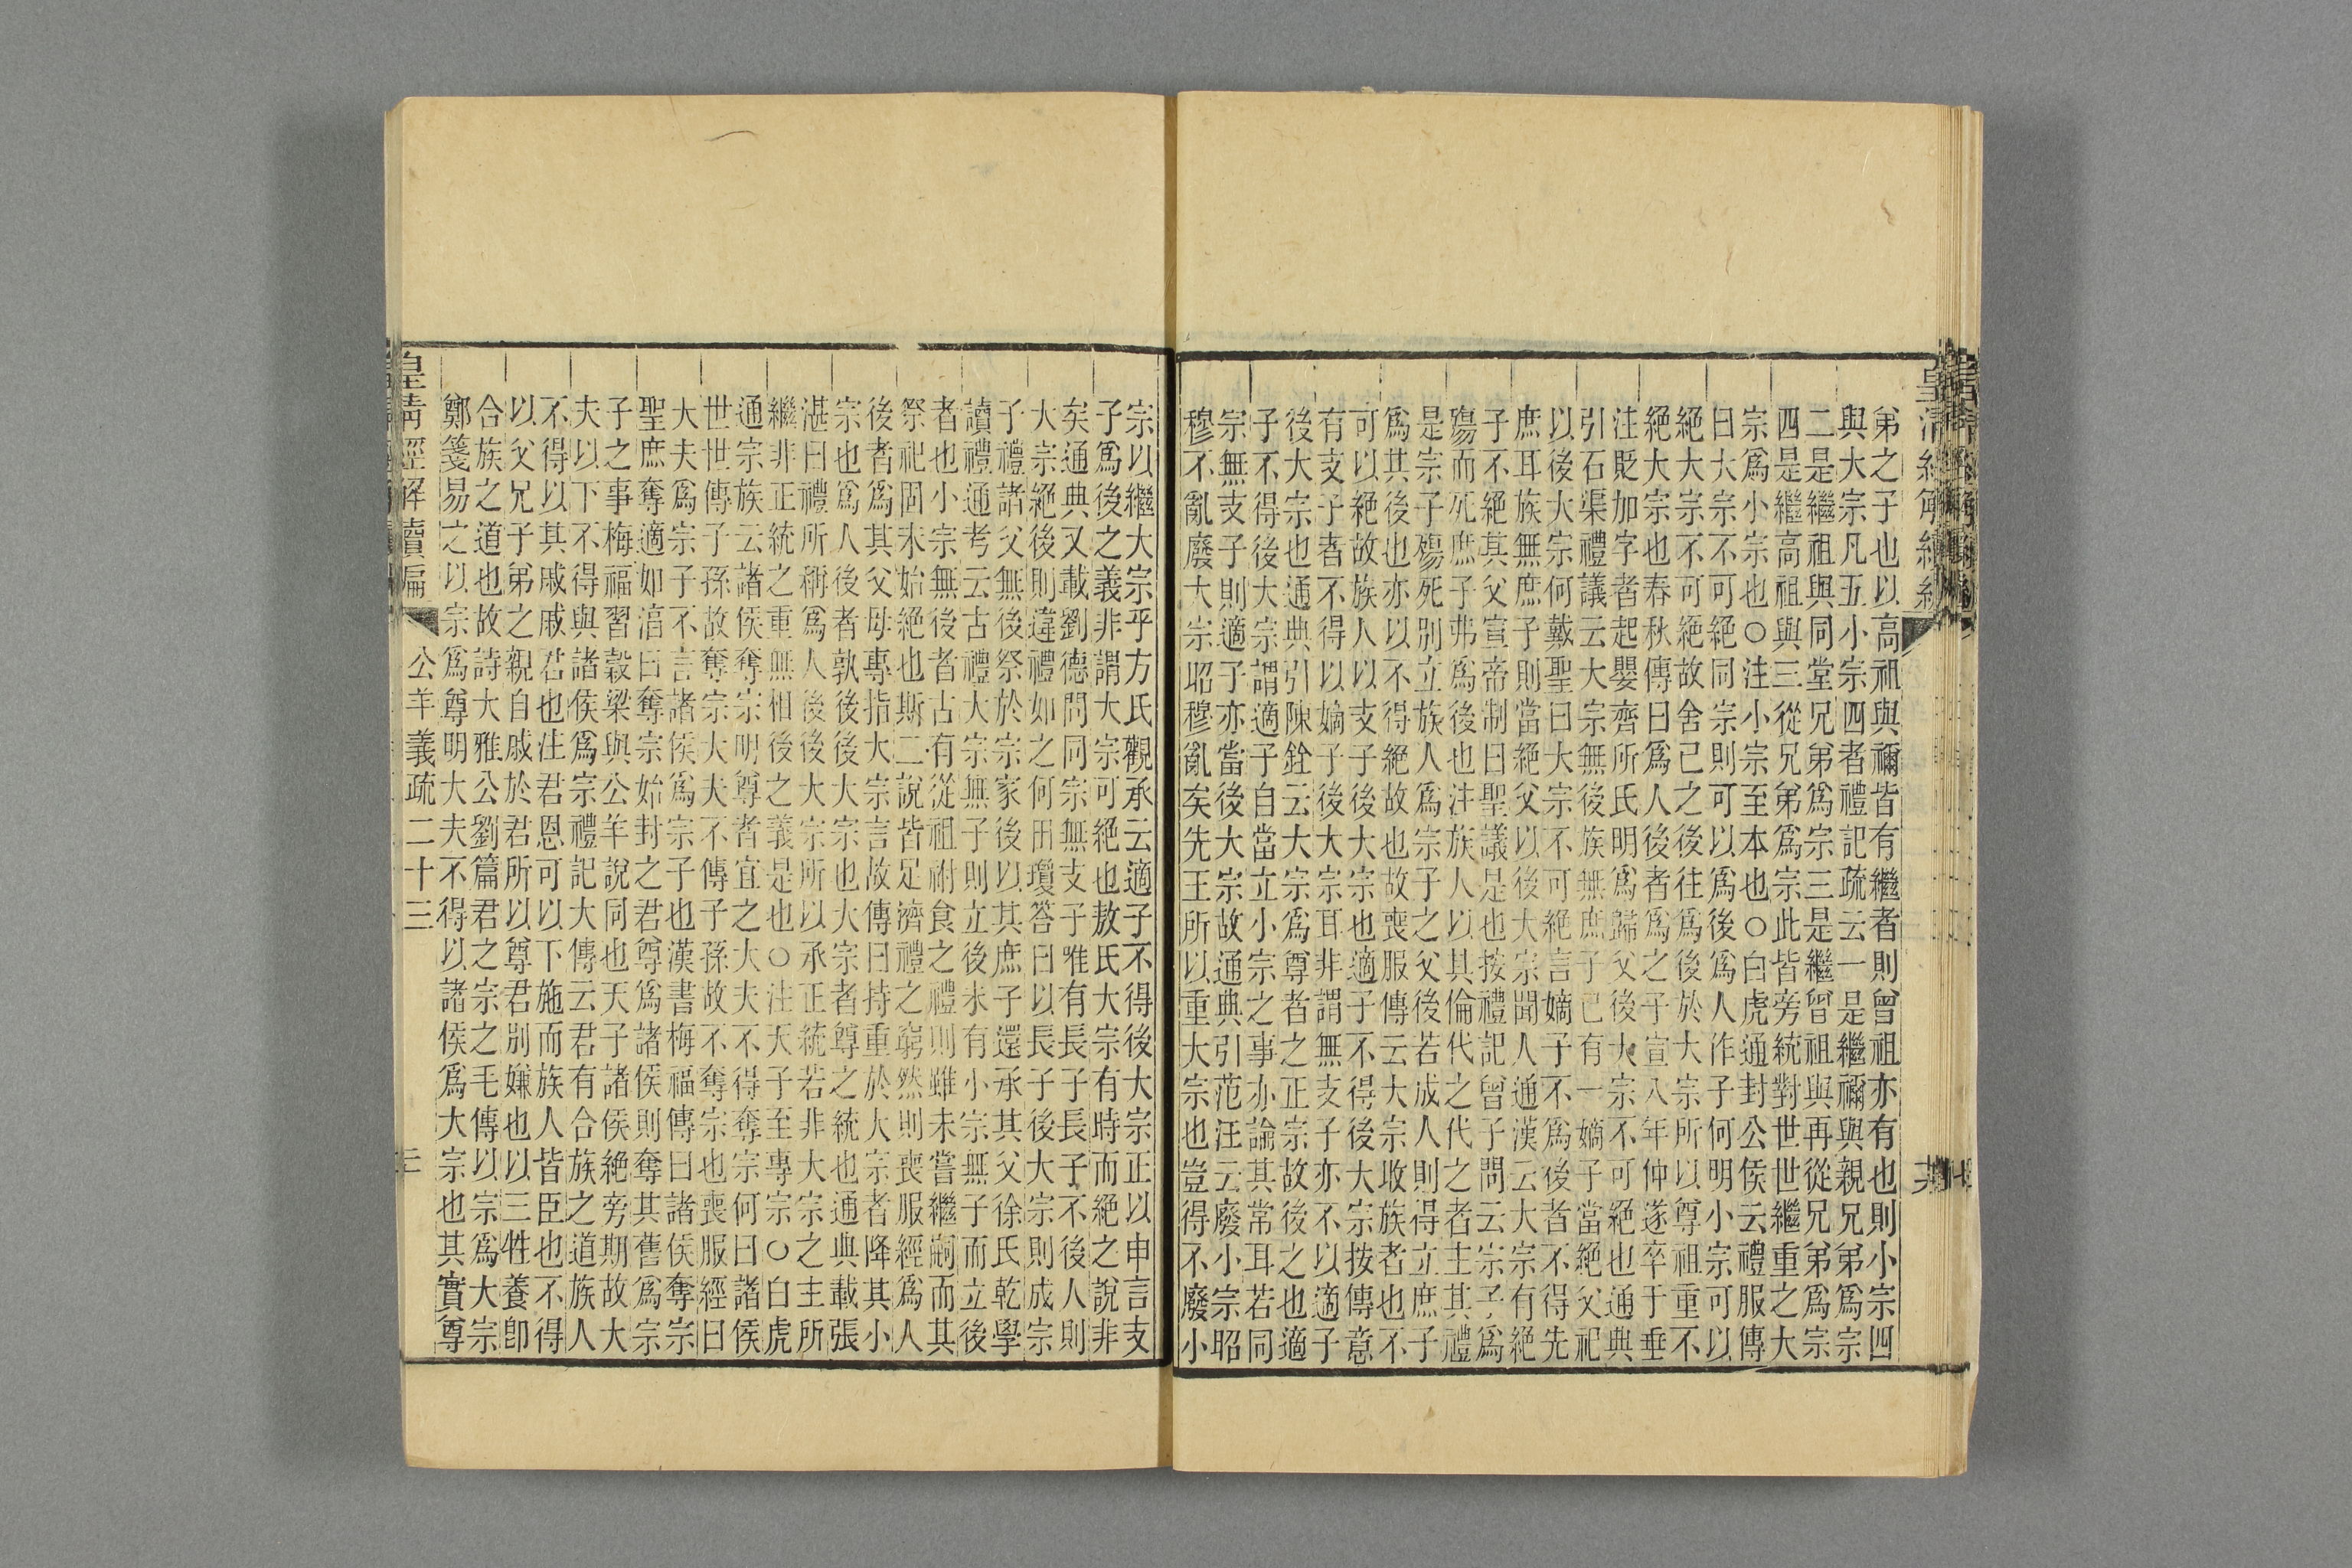 皇清經解續編
弟之子也以高祖與禰皆有繼者則曾祖亦有也則小宗四
與大宗凡五小宗四者禮記疏云一是繼禰與親兄弟爲宗
二是繼祖與同堂兄弟爲宗三是繼曾祖與再從兄弟爲宗
四是繼高祖與三從兄弟爲宗此皆旁統對世世繼重之大
宗爲小宗也○注小宗至本也○白虎通封公侯云禮服傳
曰大宗不可絕同宗則可以爲後爲人作子何明小宗可以
絕大宗不可絕故舍己之後往爲後於大宗所以尊祖重不
絕大宗也春秋傳曰爲人後者爲之子宣八年仲遂卒于垂
注貶加字者起嬰齊所氏明爲歸父後大宗不可絕也通典
引石渠禮議云大宗無後族無庶子已有一嫡子當絕父祀
以後大宗何戴聖曰大宗不可絕言嫡子不爲後者不得先
庶耳族無庶子則當絕父以後大宗聞人通漢云大宗有絕
子不絕其父宣帝制曰聖議是也按禮記曾子問云宗子爲
殤而死庶子弗爲後也注族人以其倫代之代之者主其禮
是宗子殤死別立族人爲宗子之父後若成人則得立庶子
爲其後也亦以不得絕故也故喪服傳云大宗收族者也不
可以絕故族人以支子後大宗也適子不得後大宗按傳意
有支子者不得以嫡子後大宗耳非謂無支子亦不以適子
後大宗也通典引陳銓云大宗爲尊者之正宗故後之也適
子不得後大宗謂適子自當立小宗之事亦論其常耳若同
宗無支子則適子亦當後大宗故通典引范汪云廢小宗昭
穆不亂廢大宗昭穆亂矣先王所以重大宗也豈得不廢小
宗以繼大宗乎方氏觀承云適子不得後大宗正以申言支
子爲後之義非謂大宗可絕也敖氏大宗有時而絕之說非
矣通典又載劉德問同宗無支子唯有長子長子不後人則
大宗絕後則違禮如之何田瓊答曰以長子後大宗則成宗
子禮諸父無後祭於宗家後以其庶子還承其父徐氏乾學
讀禮通考云古禮大宗無子則立後未有小宗無子而立後
者也小宗無後者古有從祖祔食之禮則雖未嘗繼嗣而其
祭祀固未始絕也斯二說皆足濟禮之窮然則喪服經爲人
後者爲其父母專指大宗言故傳曰持重於大宗者降其小
宗也爲人後者孰後後大宗也大宗者尊之統也通典載張
湛曰禮所稱爲人後後大宗所以承正統若非大宗之主所
繼非正統之重無相後之義是也○注天子至專宗○白虎
通宗族云諸侯奪宗明尊者宜之大夫不得奪宗何曰諸侯
世世傳子孫故奪宗大夫不傳子孫故不奪宗也喪服經曰
大夫爲宗子不言諸侯爲宗子也漢書梅福傳曰諸侯奪宗
聖庶奪適如淯曰奪宗始封之君尊爲諸侯則奪其舊爲宗
子之事梅福習穀梁與公羊說同也天子諸侯絕旁期故大
夫以下不得與諸侯爲宗禮記大傳云君有合族之道族人
不得以其戚戚君也注君恩可以下施而族人皆臣也不得
以父兄子弟之親自戚於君所以尊君別嫌也以三牲養卽
合族之道也故詩大雅公劉篇君之宗之毛傳以宗爲大宗
鄭箋易之以宗爲尊明大夫不得以諸侯爲大宗也其實尊
皇清經解續編
公羊義疏二十三